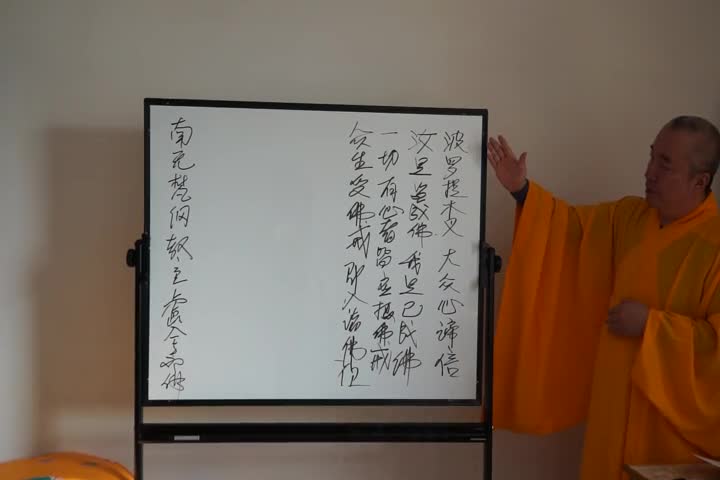 波罗提木叉 大众心谛信
汝是当成佛 我是已成佛
一切有心者皆应摄佛戒
众生受佛戒 即入诸佛
南无梵网教主盧舍那佛